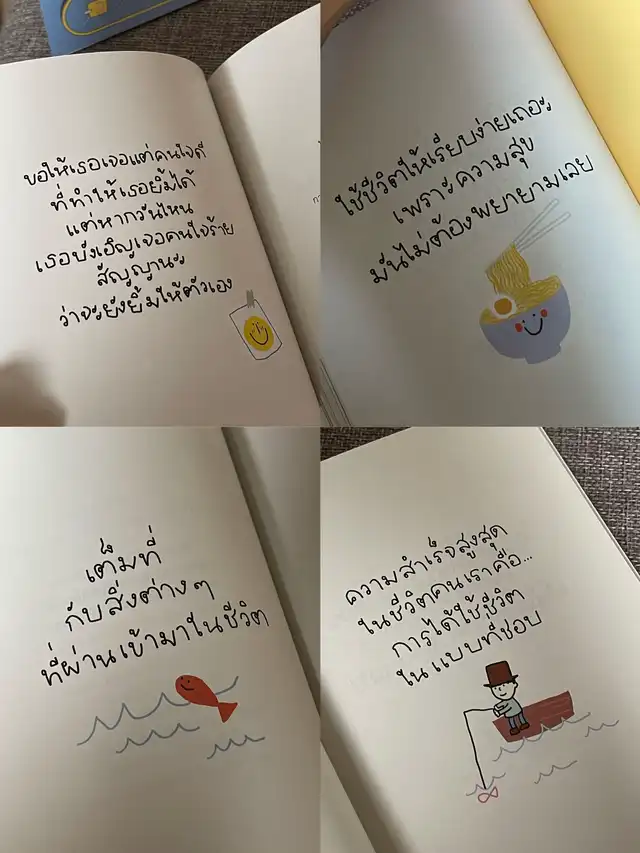 ขอให้เธอเจอแต่คนใจดี
ที่ทำให้เธอยิ้มได้
แต่หากวันไหน
เธอบังเอิญเจอคนใจร้าย
สัญญานะ
ว่าจะยังยิ้มให้ตัวเอง
ใช้ชีวิตให้เรียบง่ายเถอะ
เพราะความสุข
มันไม่ต้องพยายามเลย
เต็มที่
กับสิ่งต่างๆ
ที่ผ่านเข้ามาในชีวิต
ความสำเร็จสูงสุด
ในชีวิตคนเราคือ...
การได้ใช้ชีวิต
ในแบบที่ชอบ